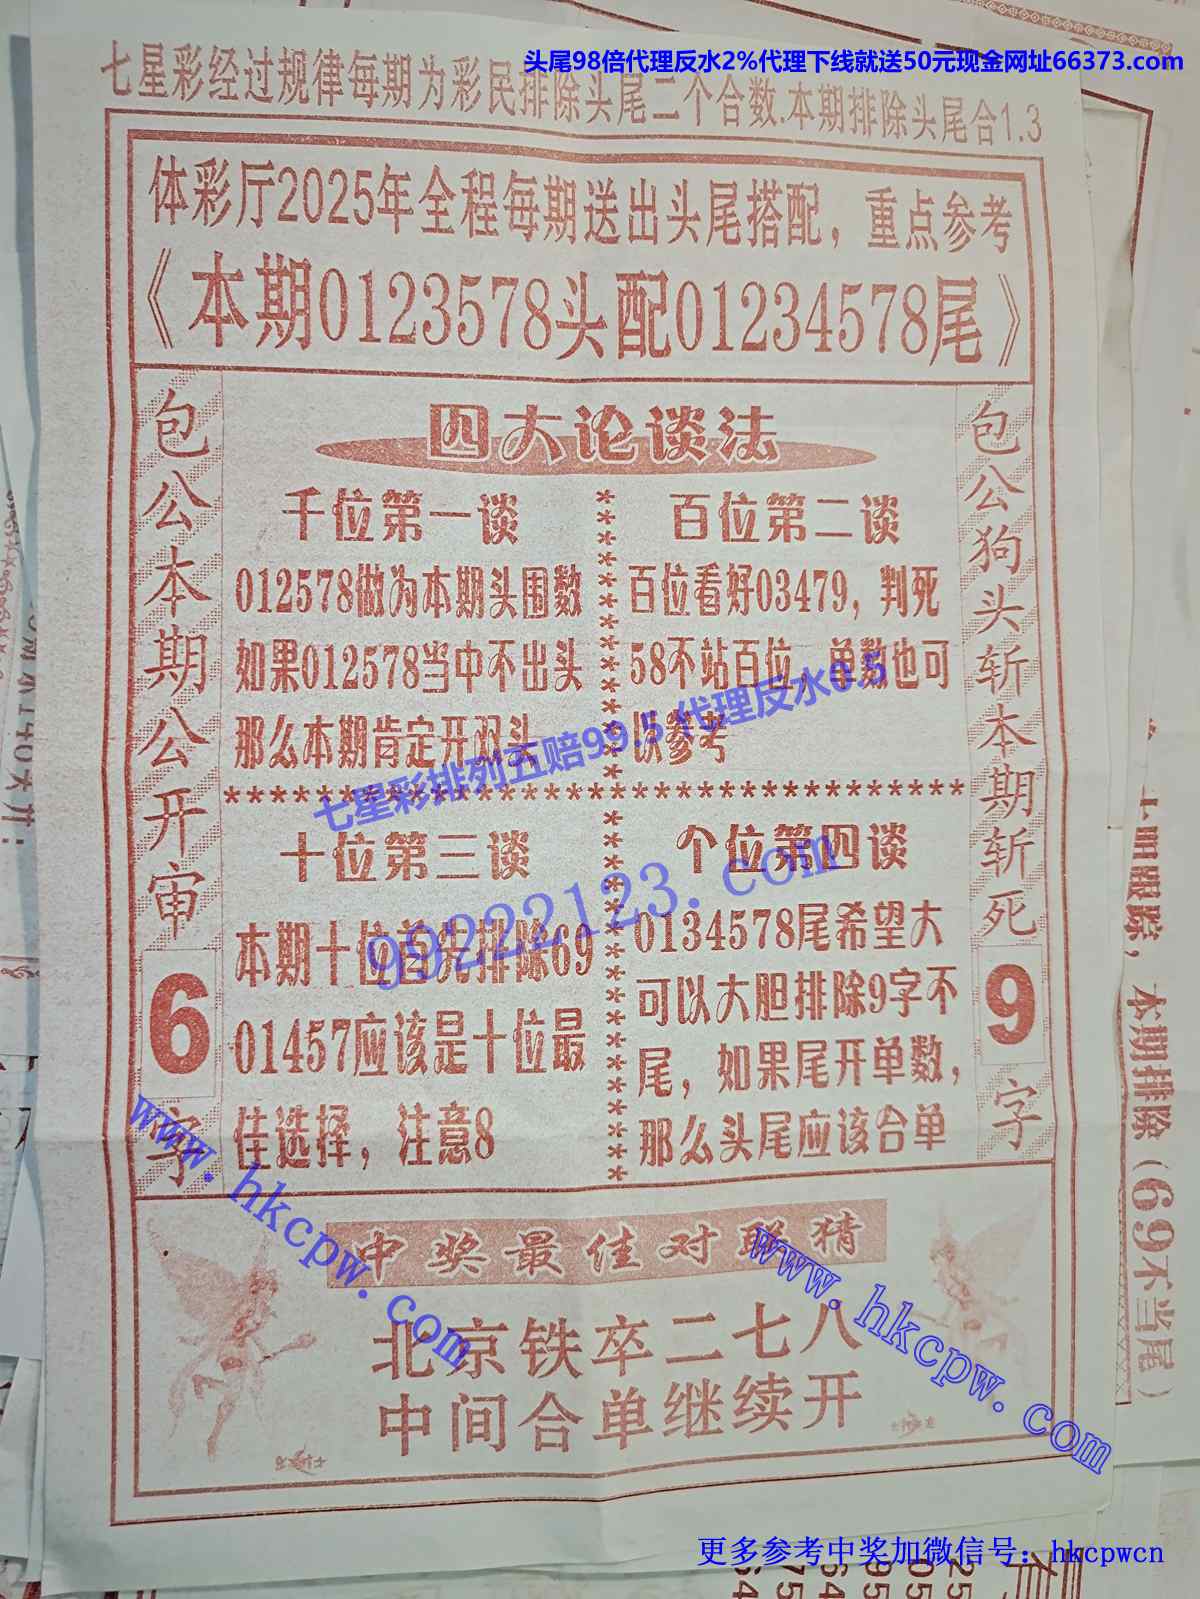 头尾98倍代理反水2%代理下线就送50元现金网址66373.com
七星彩经过规律每期为彩民排除头尾二个合数.本期排除头尾合1.3
体彩厅2025年全程每期送出头尾搭配，重点参考
《本期0123578头配01234578尾》
包公本期公开审6字
四大论谈法
千位第一谈
012578做为本期头围数
如果012578当中不出头
那么本期肯定开双头
百位第二谈
百位看好03479，判死
58不站百位，单数也可
以参考
七星彩排列五赔99.5 代理反水0.5
十位第三谈
本期十位首先排除69
01457应该是十位最
佳选择，注意8
99222123.com
个位第四谈
0134578尾希望大
可以大胆排除9字不
尾，如果尾开单数，
那么头尾应该合单
包公狗头斩本期斩死9字
中奖最佳对联猜
北京铁卒二七八
中间合单继续开
www.hkcpw.com
www.hkcpw.com
本期排除（69不当尾）
更多参考中奖加微信号：hkcpwcn